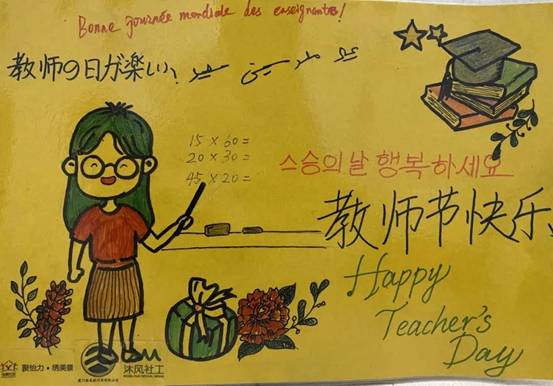 Bonne journée mondiale des enseignants!
教师の日が楽しい、
15 × 60 =
20 × 30 =
45 × 20 =
스승의 날 행복하세요
教师节快乐、
Happy
Teacher's
Day
聚怡力·绣美景
沐风社工